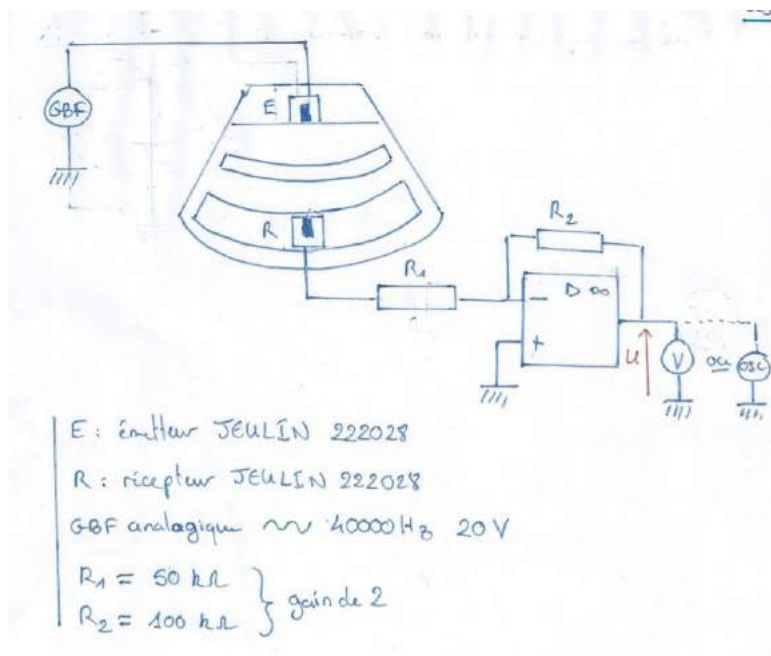 GBF
E
R
R₁
R₂
▷ ∞
−
+
u
V
ou
OSC
E : émetteur JEULIN 222028
R : récepteur JEULIN 222028
GBF analogique ∿∿ 40000 Hz 20 V
R₁ = 50 kΩ
R₂ = 100 kΩ
} gain de 2